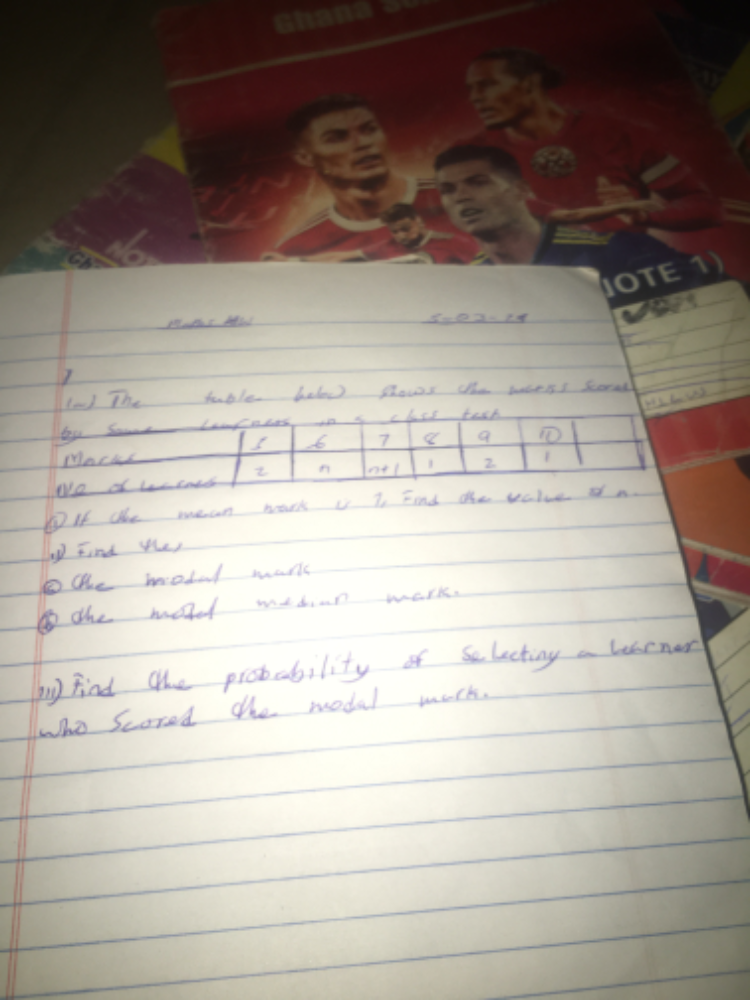 Ghana
NOTE 1)
NO
1
The table below shows the marks scored
by some learners in a class test
Marks 5 6 7 8 9 10
No of learners 2 n n+1 1 2 1
i) If the mean mark is 7, Find the value of n.
ii) Find the,
a the modal mark
b the modal median mark.
iii) Find the probability of selecting a learner
who scored the modal mark.